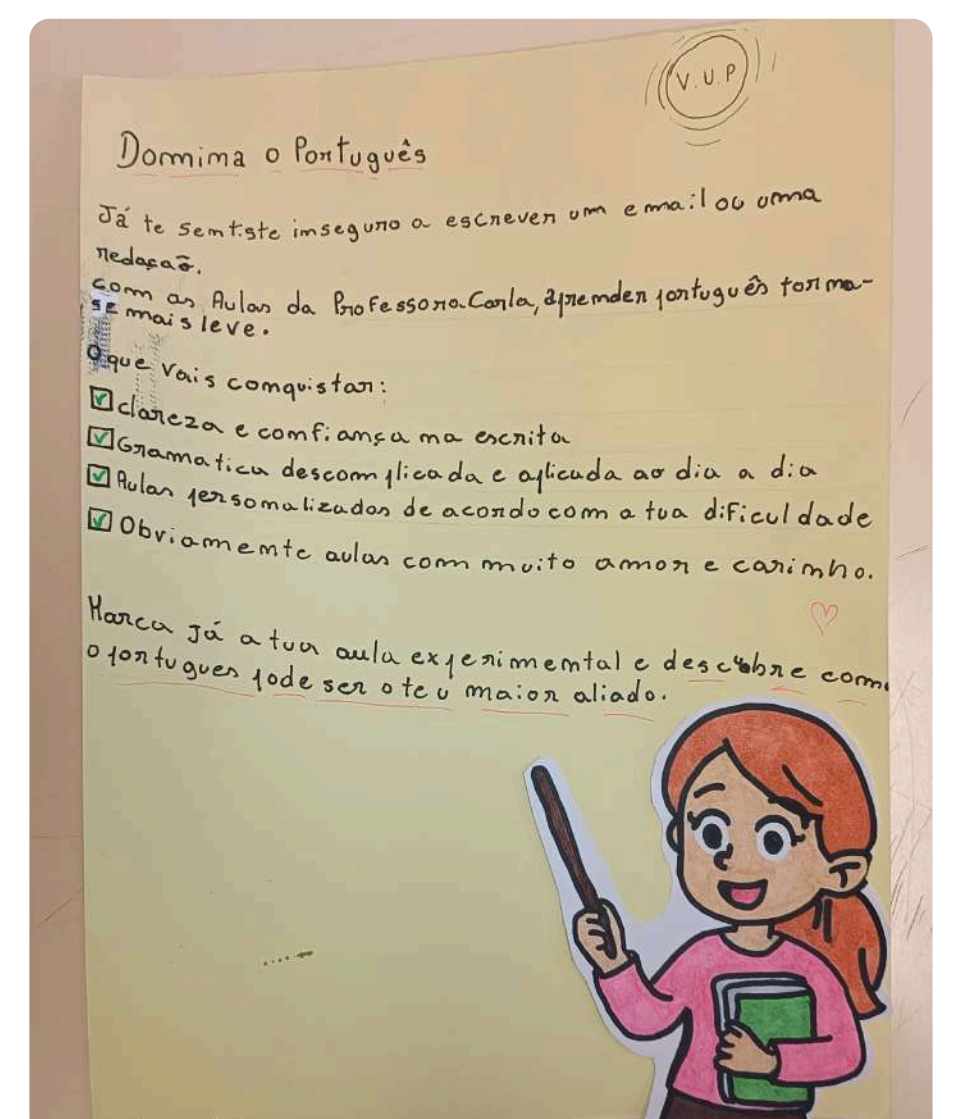 V.U.P
Domina o Português
Já te sentiste inseguro a escrever um email ou uma
redação.
com as Aulas da Professora Carla, aprender português torna-
se mais leve.
O que vais conquistar:
☑ clareza e confiança na escrita
☑ Gramatica descomplicada e aplicada ao dia a dia
☑ Aulas personalizadas de acordo com a tua dificuldade
☑ Obviamente aulas com muito amor e carinho.
Marca Já a tua aula experimental e descobre como
o portugues pode ser o teu maior aliado.